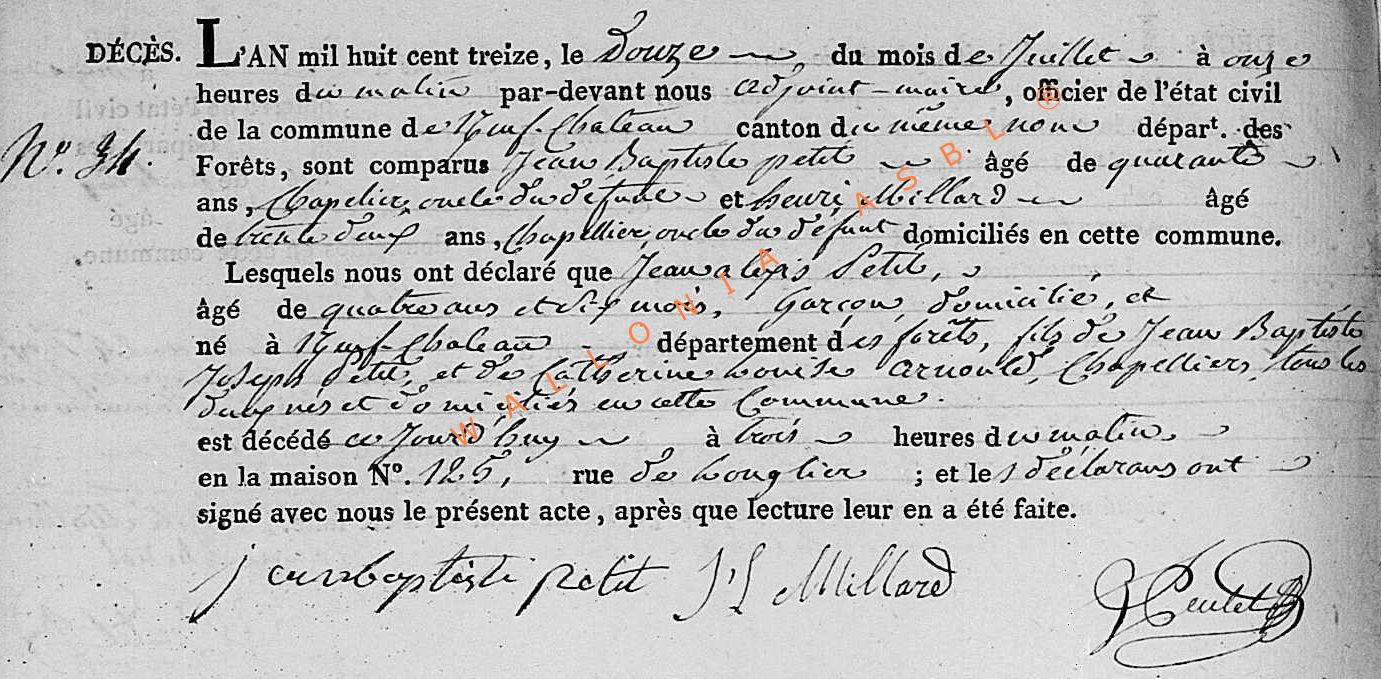 DÉCÈS. L'AN mil huit cent treize, le Douze du mois de Juillet à onze
heures du matin par-devant nous adjoint-maire, officier de l'état civil
de la commune de Neuf-Chateau canton du même nom départ. des
N.° 34. Forêts, sont comparus Jean Baptiste petit âgé de quarante
ans, Chapelier, oncle du défunt et henri Millard âgé
de trente deux ans, Chapellier, oncle du défunt domiciliés en cette commune.
Lesquels nous ont déclaré que Jean alexis Petit,
âgé de quatre ans et dix mois, Garçon, domicilié, et
né à Neuf-Chateau département des forêts, fils de Jean Baptiste
Joseph Petit, et de Catherine Louise Arnould, Chapelliers, tous les
deux nés et domiciliés en cette Commune.
est décédé ce Jourd'huy à trois heures du matin,
en la maison N°. 125, rue de Longlier ; et les déclarans ont
signé avec nous le présent acte, après que lecture leur en a été faite.
jean baptiste petit Millard
WALLONIA ASBL @